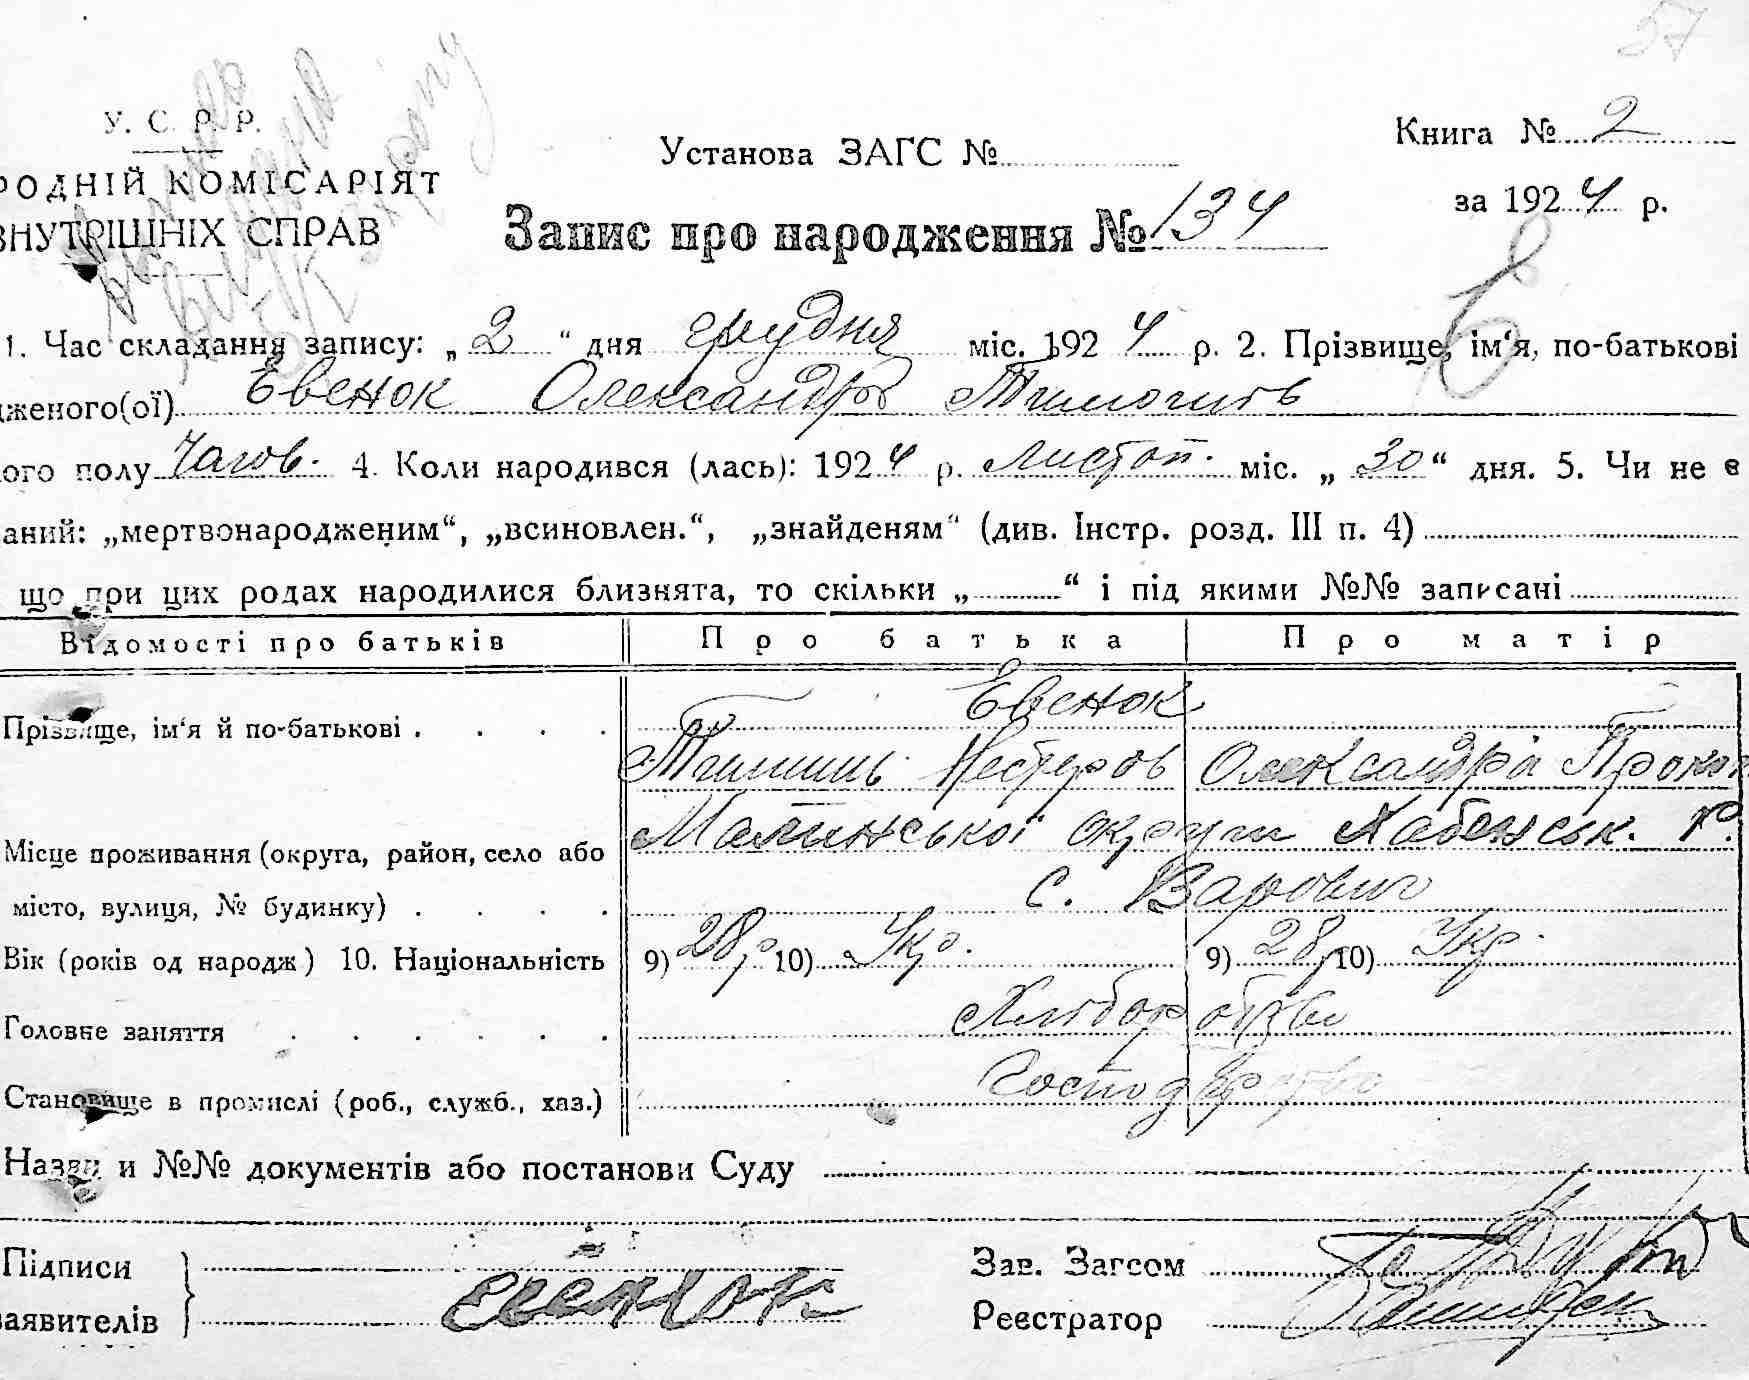 57
У. С. Р. Р.
РОДНІЙ КОМІСАРІЯТ
ВНУТРІШНІХ СПРАВ
Установа ЗАГС №
Книга № 2
за 1924 р.
Запис про народження № 134
1. Час складання запису: „2“ дня грудня міс. 1924 р. 2. Прізвище, ім‘я, по-батькові
дженого(ої) Евенок Олександр
ого полу Чолов. 4. Коли народився (лась): 1924 р. листоп. міс. „30“ дня. 5. Чи не є
аний: „мертвонародженим“, „всиновлен.“, „знайденям“ (див. Інстр. розд. III п. 4)
що при цих родах народилися близнята, то скільки „ “ і під якими №№ записані
Відомості про батьків Про батька Про матір
Евенок
Прізвище, ім‘я й по-батькові
Нестеров Олександра Прокоп
Малинської округи Хабенськ. р.
Місце проживання (округа, район, село або
с. Варовичі
місто, вулиця, № будинку)
Вік (років од народж) 10. Національність 9) 28 р. 10) Укр. 9) 28 р. 10) Укр.
Хлібороб
Головне заняття
Господ
Становище в промислі (роб., служб., хаз.)
Назви и №№ документів або постанови Суду
Підписи
заявителів
Евенок
Зав. Загсом
Реєстратор